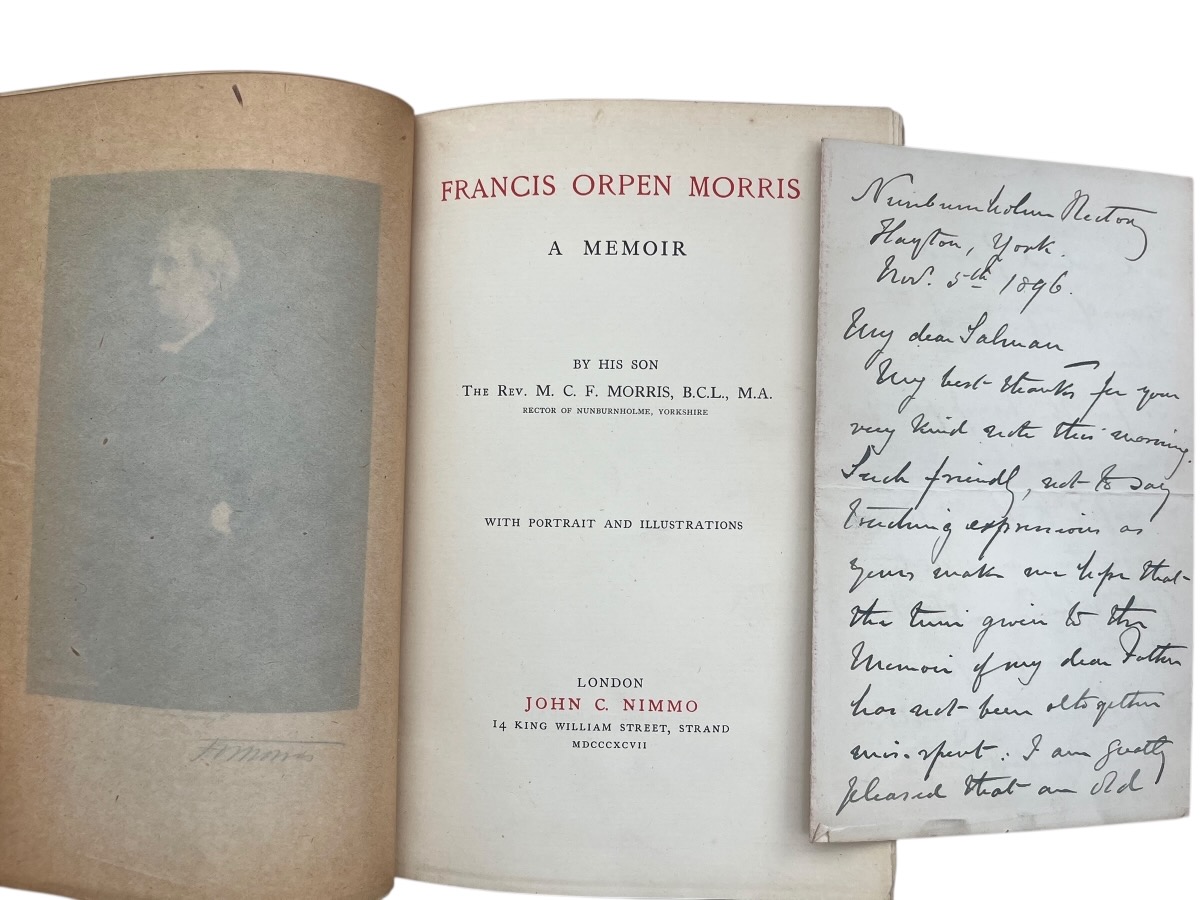 FRANCIS ORPEN MORRIS
A MEMOIR
BY HIS SON
THE REV. M. C. F. MORRIS, B.C.L., M.A.
RECTOR OF NUNBURNHOLME, YORKSHIRE
WITH PORTRAIT AND ILLUSTRATIONS
LONDON
JOHN C. NIMMO
14 KING WILLIAM STREET, STRAND
MDCCCXCVII
Nunburnholme Rectory
Hayton, York.
Nov. 5th 1896.
My dear Salman
My best thanks for your
very kind note this morning.
Such friendly, not to say
touching expressions as
yours make me hope that
the time given to the
Memoir of my dear Father
has not been altogether
mis-spent: I am greatly
pleased that an old